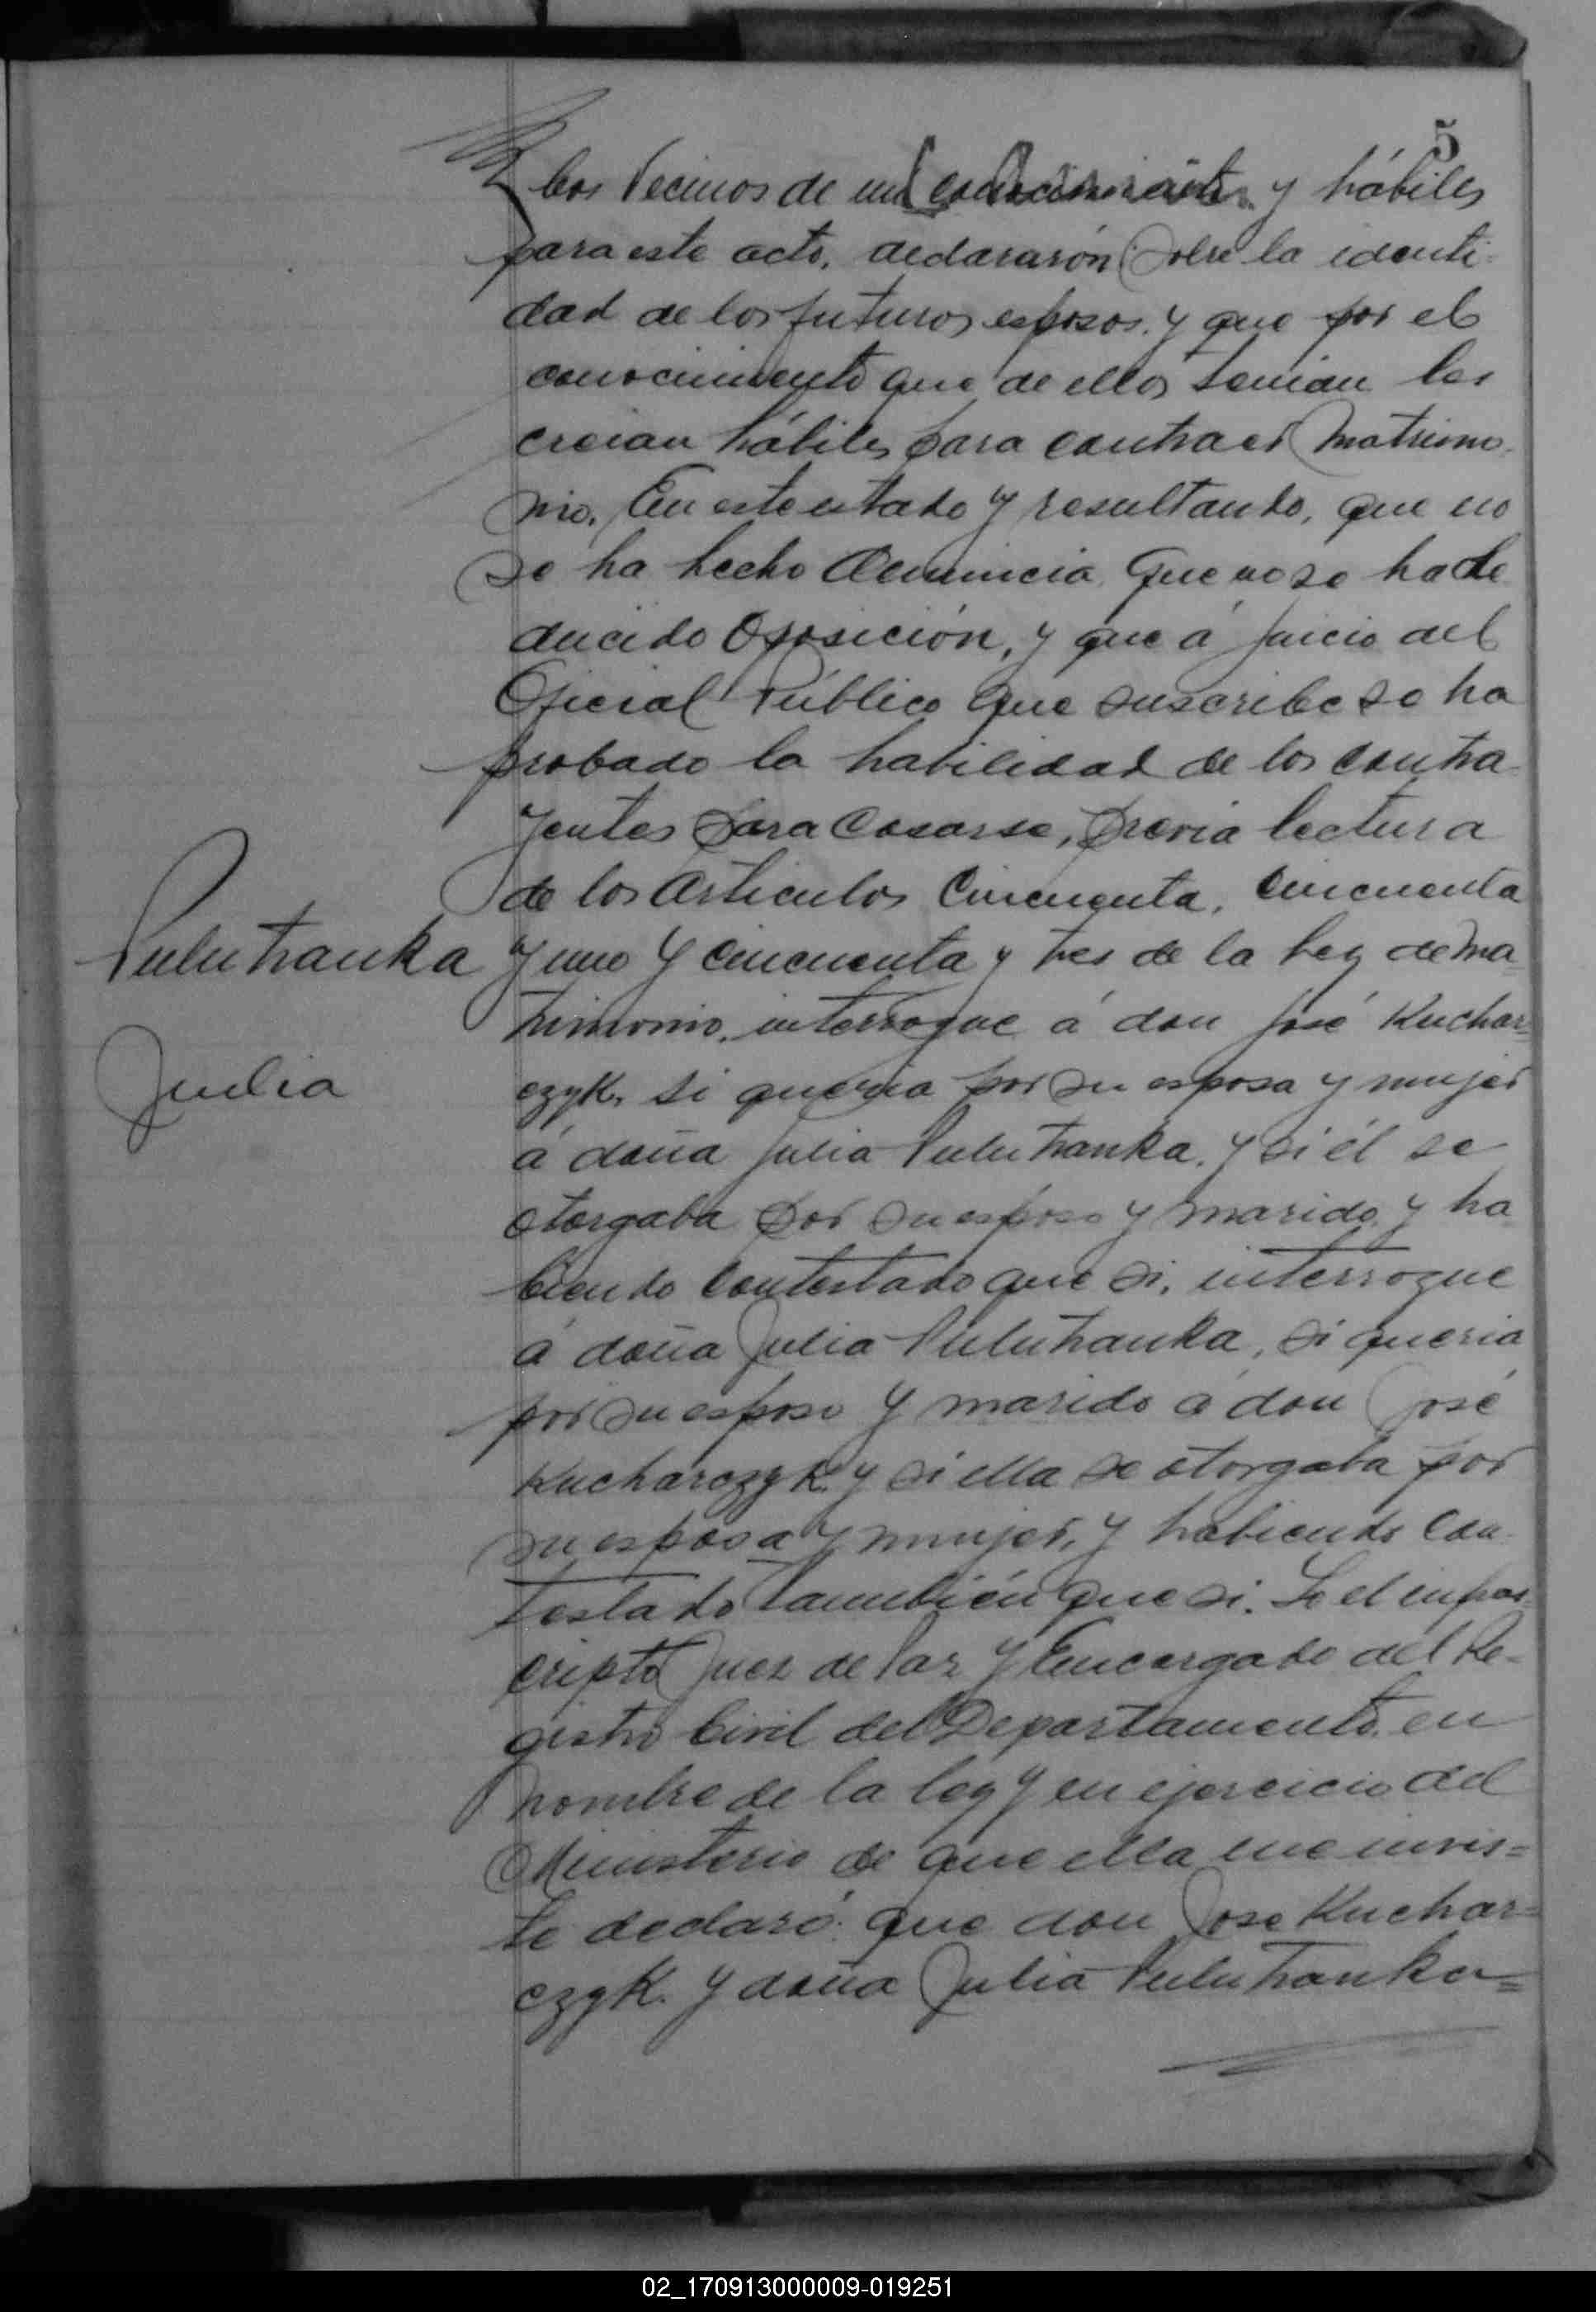 5
bos vecinos de mi conocimiento y hábiles
para este acto, declararón sobre la identi-
dad de los futuros esposos. y que por el
conocimiento que de ellos tenian los
creian hábiles para contraer matrimo-
nio. En este estado y resultando, que no
se ha hecho denuncia que no se ha de
ducido Oposición, y que á juicio del
Oficial Público que suscribe se ha
probado la habilidad de los contra-
yentes para Casarse, previa lectura
de los articulos Cincuenta, cincuenta
Puluhanka
y uno y cincuenta y tres de la ley de Ma-
trimonio, interrogue á don José Kuchar=
Julia
czyk, si queria por su esposa y mujer
á doña Julia Puluhanka, y si él se
otorgaba por su esposo y marido, y ha
biendo contestado que si, interrogue
á doña Julia Puluhanka, si queria
por su esposo y marido á don José
Kucharczyk y si ella se otorgaba por
su esposa y mujer, y habiendo con-
testado también que si.
cripto Juez de Paz y Encargado del Re-
gistro Civil del Departamento, en
nombre de la ley y en ejercicio del
Ministerio de que ella me invis=
te declaró: que don Jose Kuchar=
czyk. y doña Julia Puluhanka=
02_170913000009-019251